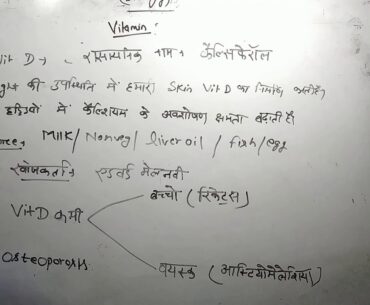 Vitamin:
Vit D → रासायनिक नाम = कैल्सिफेरॉल
की उपस्थिति में हमारा skin Vit D का निर्माण करती है।
हड्डियों में कैल्शियम के अवशोषण क्षमता बढ़ाती है
Milk / Nonveg / liver oil / fish / egg
खोजकर्ता → एडवर्ड मेलनबी
बच्चो (रिकेट्स)
Vit D कमी
Osteoporosis
वयस्क (आस्टियोमैलेशिया)